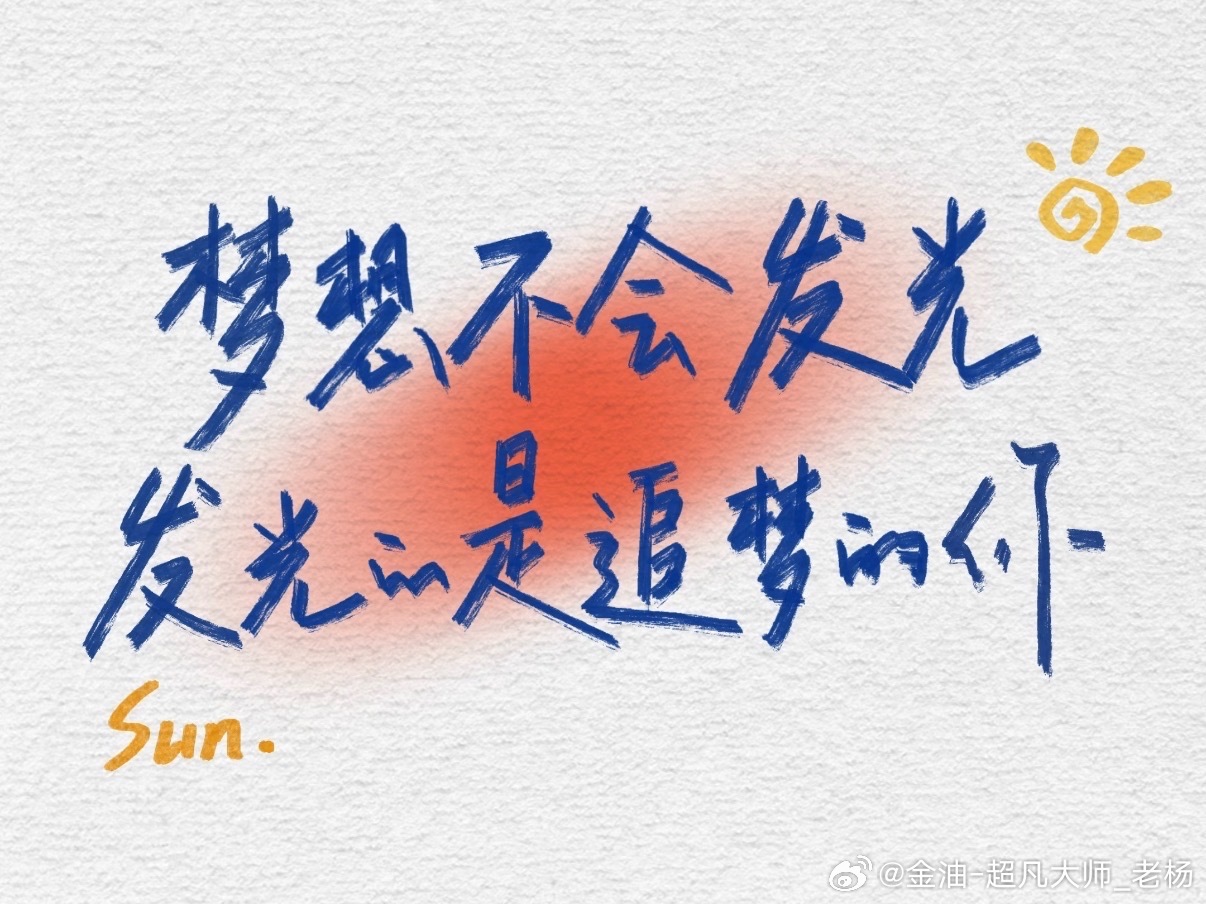 梦想不会发光
发光的是追梦的你
Sun.
@金油-超凡大师_老杨